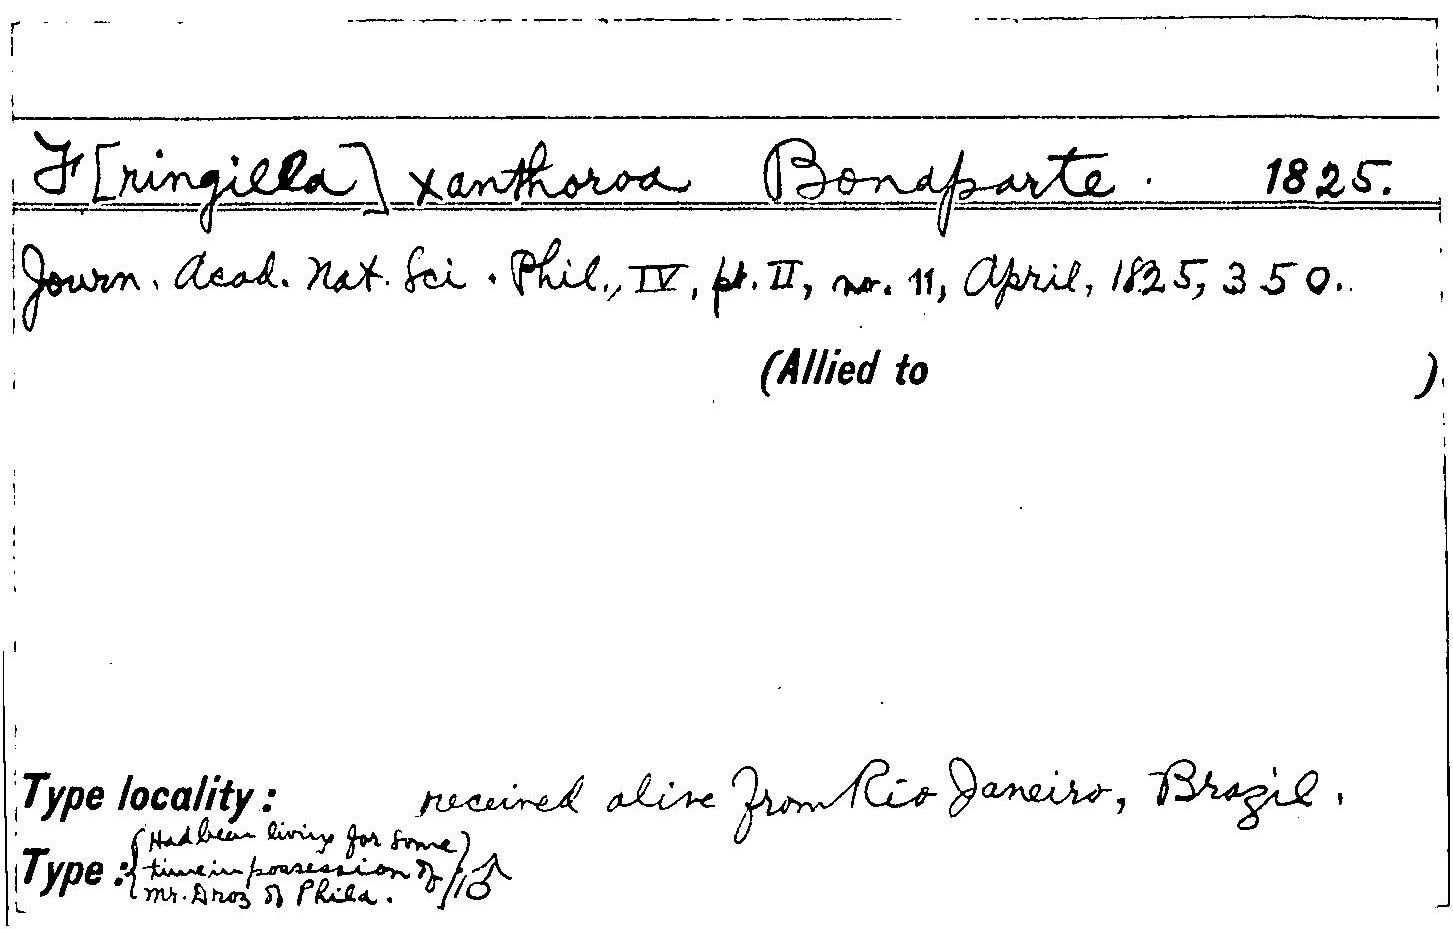 F[ringilla] xanthoroa Bonaparte. 1825.
Journ. Acad. Nat. Sci. Phil., IV, pt. II, no. 11, April, 1825, 350.
(Allied to )
Type locality: received alive from Rio Janeiro, Brazil.
Type: {Had been living for some
time in possession of
Mr. Droz of Phila.} 1♂